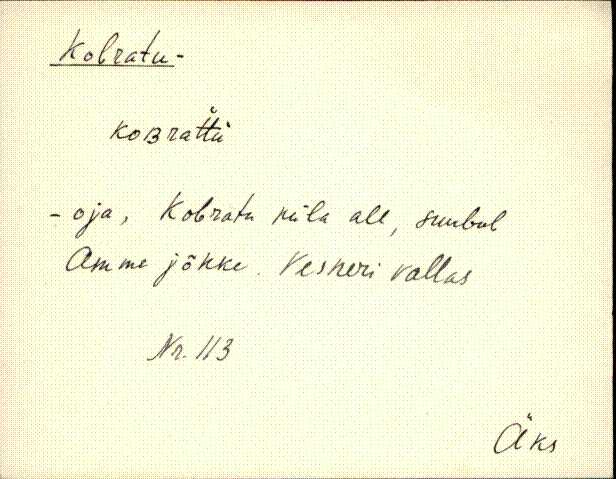 Kobratu-
koʙrattu
- oja, Kobratu küla all, suubub
Amme jõkke. Vesneri vallas
Nr. 113
Äks